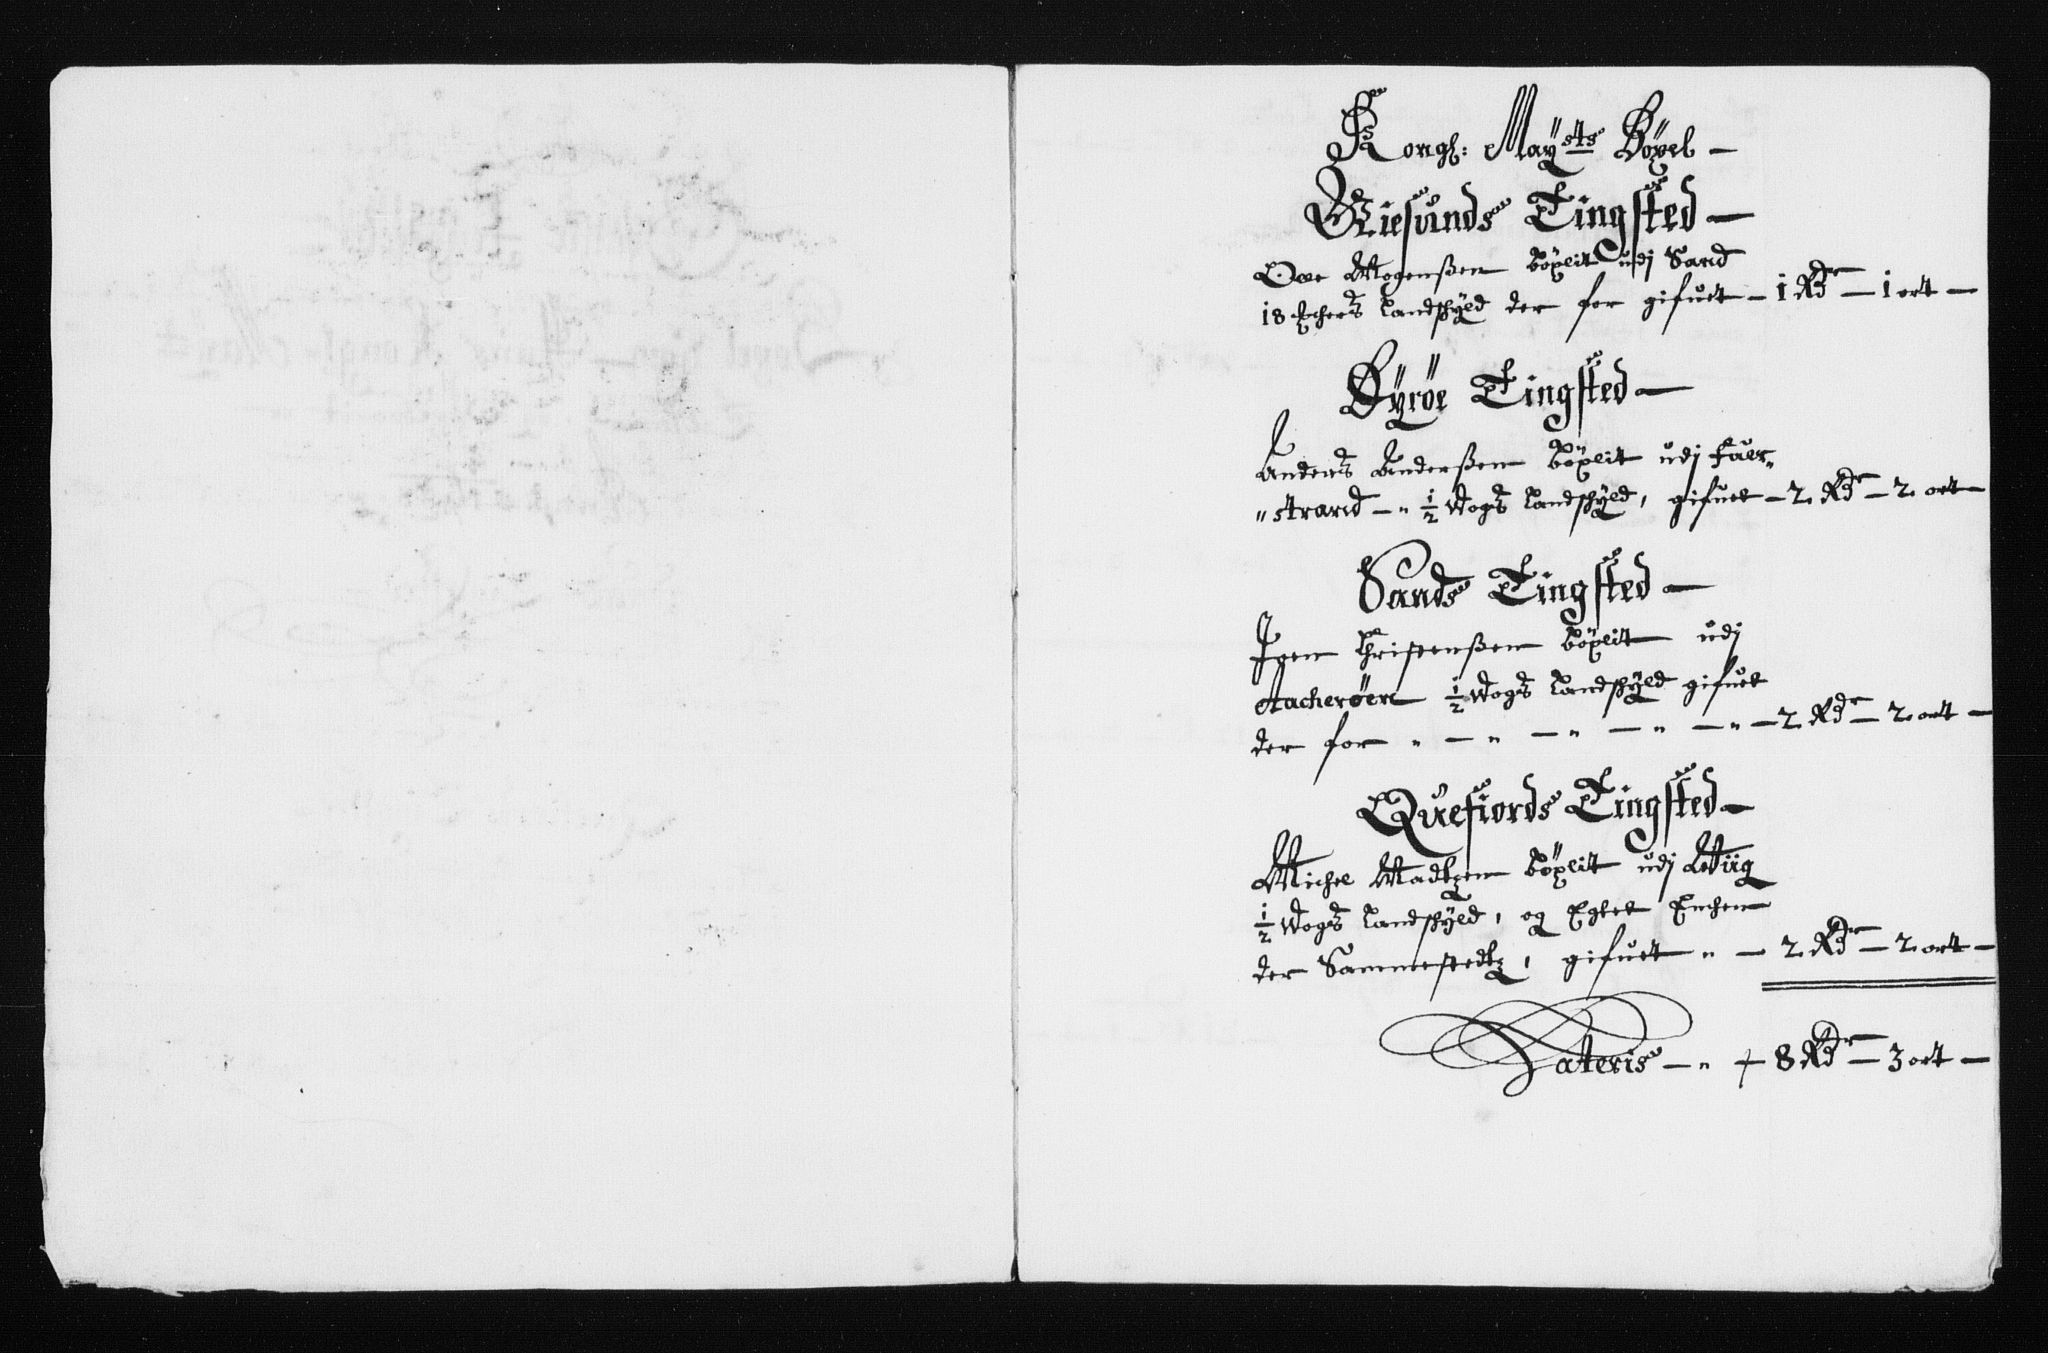 Kongl: Maÿsts Böxel —
Giesunds Tingsted —
Ole Mogenßen böxlit udj Sand
18 landschÿld der for gifuet — 1 Rdr — 1 ort —
Dÿröe Tingsted —
Anders Anderßen böxlit udj Faer„
„strand — „ ½ Wogs landschÿld, gifuet — 2 Rdr — 2 ort —
Sands Tingsted —
Christenßen böxlit udj
Aacheröen ½ Wogs landschÿld gifuet
der for „ — „ — „ — „ — „ — 2 Rdr — 2 ort —
Quefiords Tingsted —
Michel Madtzen böxlit udj Wiig
½ Wogs landschÿld, og Egtet Enchen
der Sammestedtz, gifuet „ — 2 Rdr — 2 ort —
Lateris — „ 8 Rdr — 3 ort —